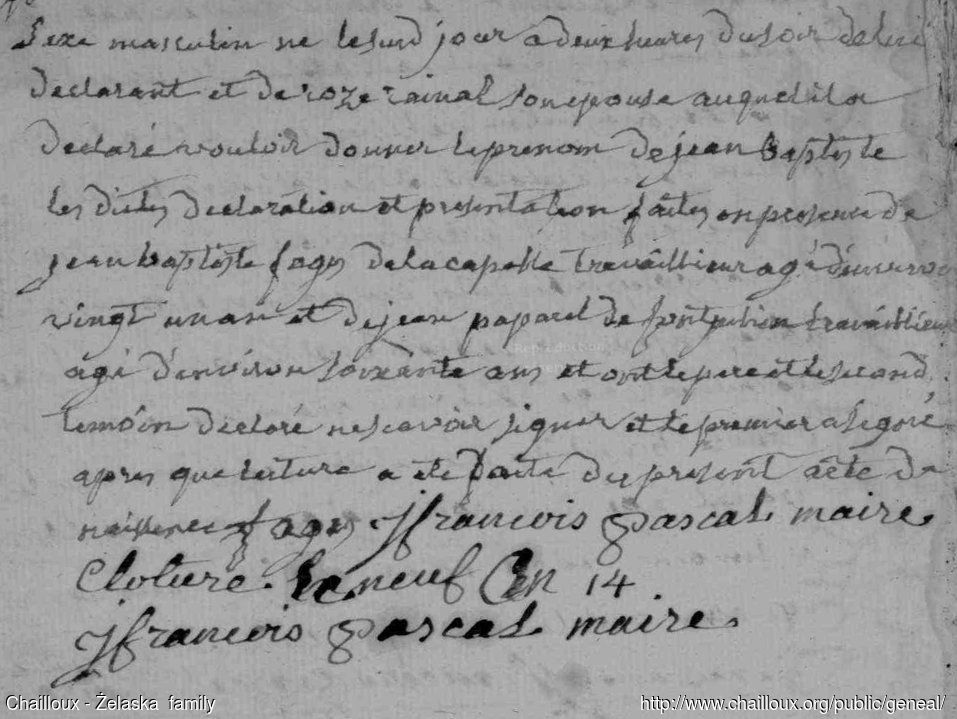 sexe masculin ne lesusd jour a deux heures du soir de lui
declarant et de roze rainal son epouse auquel il a
declaré vouloir donner le prenom de jean baptiste
les dittes declaration et presentation faites en presence de
jean baptiste fages de lacapelle travaillieur agé d'environ
vingt un an et de jean paparel de travaillieur
agé d'environ soixante ans et ont le pere et le second
temoin declaré ne scavoir signer et le premier a signé
apres que lecture a ete faite du present acte de
naissence fages jfrancois pascal maire
Cloture. Le neuf en 14
jfrancois pascal maire.
Chailloux - Żelaska family
http://www.chailloux.org/public/geneal/